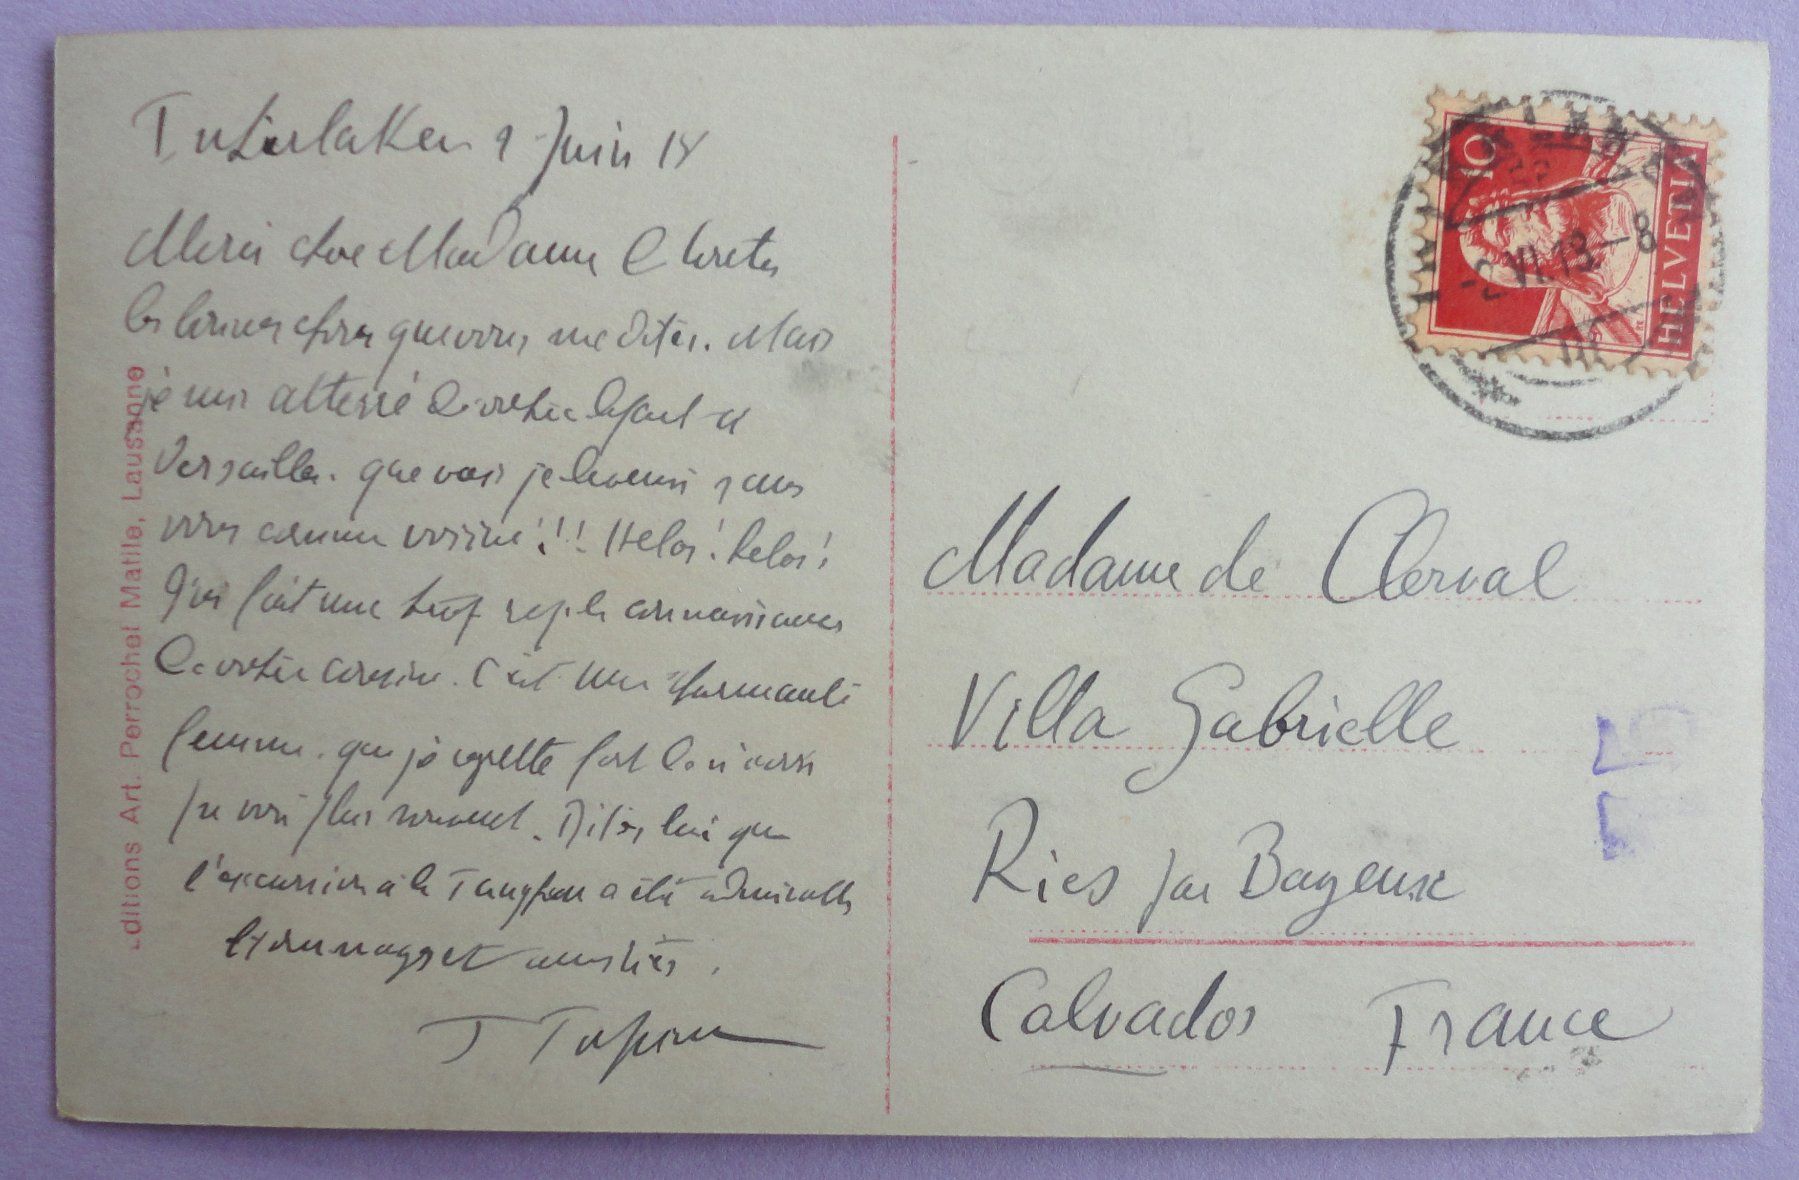 Interlaken 9 Juin 14
Merci chère Madame de toutes
les bonnes choses que vous me dites. Mais
je suis atterré de votre départ à
Versailles. que vais je devenir sans
vous comme voisine!!! Helas! helas!
J'ai fait une trop rapide connaissance
de votre cousine. C'est une charmante
femme. que je regrette fort de n'avoir
pu voir plus souvent. Dites lui que
l'excursion à la Jungfrau a été admirable
et hommages et amitiés.
J
Madame de Clerval
Villa Gabrielle
Ries par Bayeux
Calvados France
Editions Art. Perrochet Matile, Lausanne
10
HELVETIA
VI.13-8